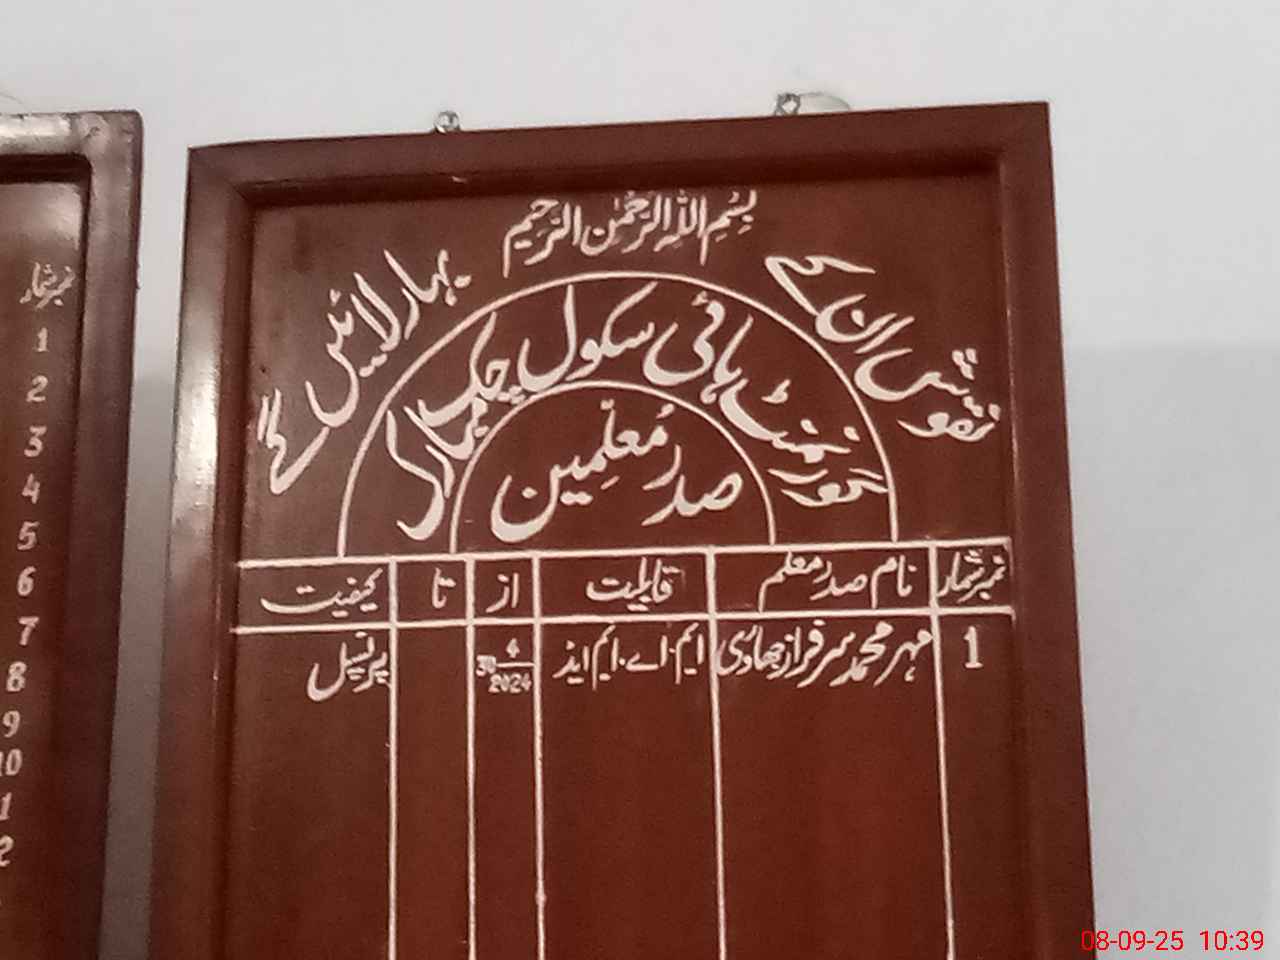 بِسْمِ اللهِ الرَّحْمٰنِ الرَّحِيْمِ
نقوش ان کے بہار لائیں گے
گورنمنٹ ہائی سکول چک مبارک
صدر مُعلّمِین
نمبر شمار نام صدر معلم قابلیت از تا کیفیت
1 مہر محمد سرفراز جھاوری ایم.اے.ایم ایڈ 30 4 2024 پرنسپل
نمبر شمار
1
2
3
4
5
6
7
8
9
10
08-09-25 10:39